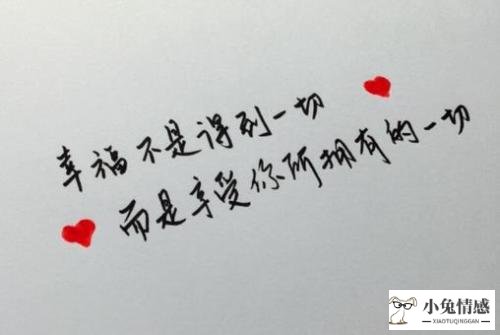 幸福不是得到一切
而是享受你所拥有的一切
小兔情感
XIAOTUQINGGAN